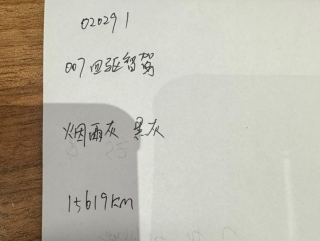 020291
007四驱智驾
烟雨灰 黑灰
15619km